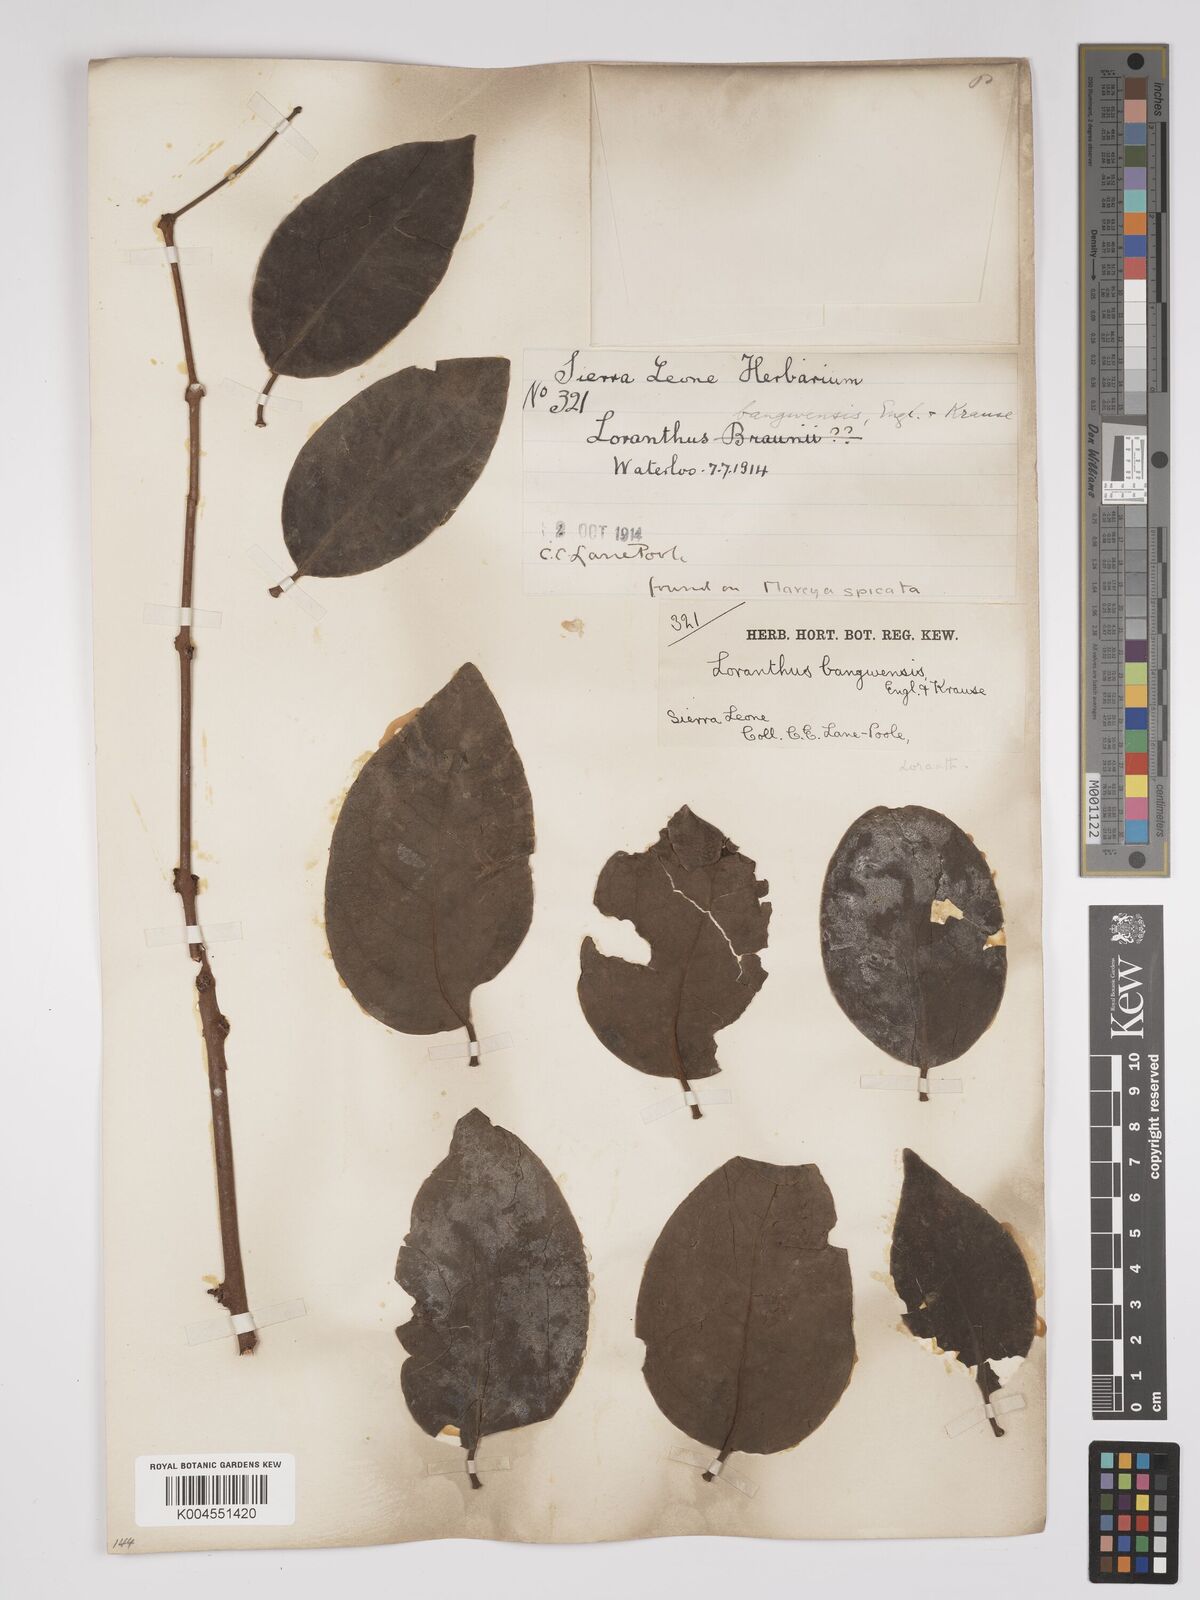 Sierra Leone Herbarium
No 321
bangwensis, Engl. & Krause
Loranthus Braunii ??
Waterloo. 7.7.1914
2 OCT 1914
C.C Lane Poole
found on Mareya spicata
321
HERB. HORT. BOT. REG. KEW.
Loranthus bangwensis,
Engl. & Krause
Sierra Leone
Coll. C.E. Lane-Poole,
Loranth.
ROYAL BOTANIC GARDENS KEW
K004551420
144
inches
Don Williams
centimeters
M001122
Royal Botanic Gardens
Kew
0 1 2 3 4 5 6 7 8 9 10
cm
copyright reserved